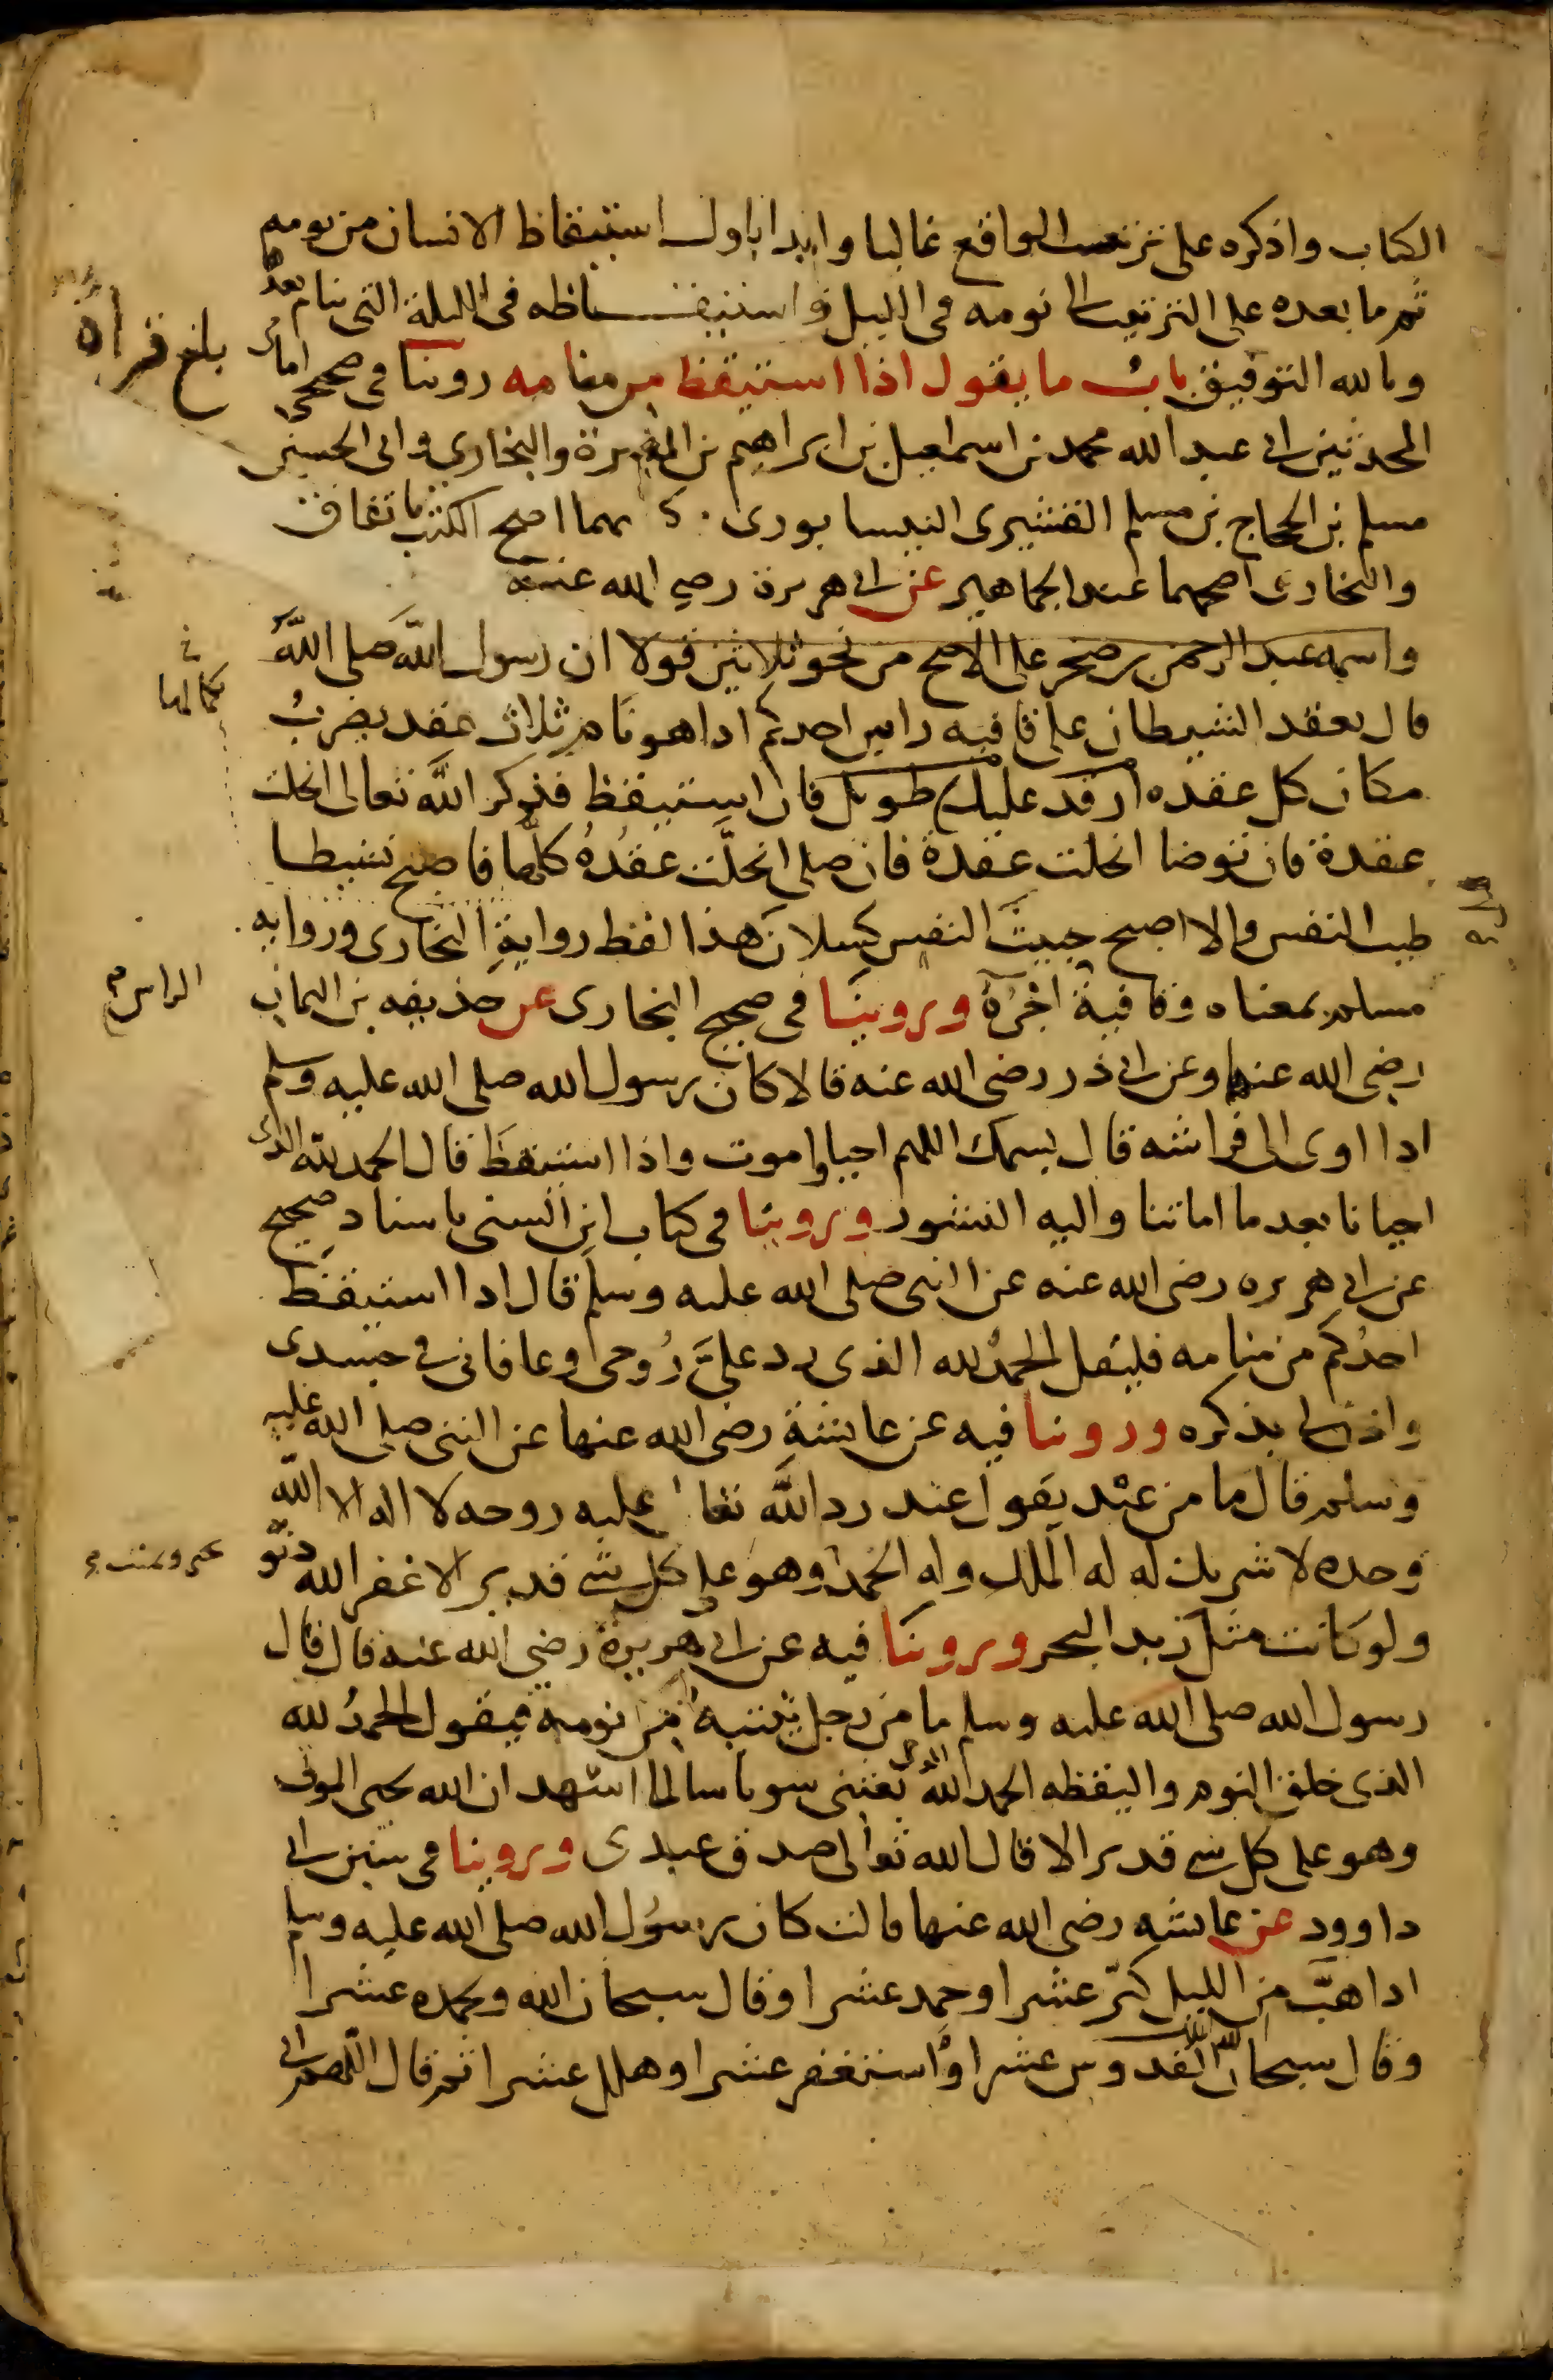 الكتاب واذكره على ترتيب الواقع غالبا وابدا باول استيقاظ الانسان من نومه
ثم ما بعده على الترتيب الى نومه في الليل واستيقاظه في الليلة التي ينام بعدها
وبالله التوفيق باب ما يقول اذا استيقظ من منامه روينا في صحيحي اماما
المحدثين ابي عبد الله محمد بن اسمعيل بن ابراهيم بن المغيرة والبخاري وابي الحسين
مسلم بن الحجاج بن مسلم القشيري النيسابوري هما اصح الكتب باتفاق
والبخاري اصحهما عند الجماهير عن ابي هريرة رضي الله عنه
واسمه عبد الرحمن بن صخر على الاصح من نحو ثلاثين قولا ان رسول الله صلى الله
قال يعقد الشيطان على قافية راس احدكم اذا هو نام ثلاث عقد يضرب
مكان كل عقده ارقد عليك طويل فان استيقظ فذكر الله تعالى انحلت
عقدة فان توضا انحلت عقدة فان صلى انحلت عقده كلها فاصبح نشيطا
طيب النفس والا اصبح خبيث النفس كسلان هذا لفظ رواية البخاري ورواية
مسلم بمعناه وقافية اخره وروينا في صحيح البخاري عن حذيفه بن اليمان
رضي الله عنهما وعن ابي ذر رضي الله عنه قالا كان رسول الله صلى الله عليه وسلم
اذا اوى الى فراشه قال بسمك اللهم احيا واموت واذا استيقظ قال الحمد لله الذي
احيانا بعد ما اماتنا واليه النشور وروينا في كتاب ابن السني باسناد صحيح
عن ابي هريره رضي الله عنه عن النبي صلى الله عليه وسلم قال اذا استيقظ
احدكم من منامه فليقل الحمد لله الذي رد علي روحي وعافاني في جسدي
واذن لي بذكره وروينا فيه عن عائشة رضي الله عنها عن النبي صلى الله عليه
وسلم قال ما من عبد يقول عند رد الله تعا عليه روحه لا اله الا الله
وحده لا شريك له له الملك وله الحمد وهو على كل شي قدير الا غفر الله ذنو
ولو كانت مثل زبد البحر وروينا فيه عن ابي هريرة رضي الله عنه قال قال
رسول الله صلى الله عليه وسلم ما من رجل ينتبه من نومه فيقول الحمد لله
الذي خلق النوم واليقظه الحمد لله الذي بعثني سويا سالما اشهد ان الله يحيي الموتى
وهو على كل شي قدير الا قال الله تعالى صدق عبدي وروينا في سنن ابي
داوود عن عائشه رضي الله عنها قالت كان رسول الله صلى الله عليه وسلم
اذا هب من الليل كبر عشرا وحمد عشرا وقال سبحان الله وبحمده عشرا
وقال سبحان الملك القدوس عشرا واستغفر عشرا وهلل عشرا ثم قال اللهم اني
بلغ قراه
الراس